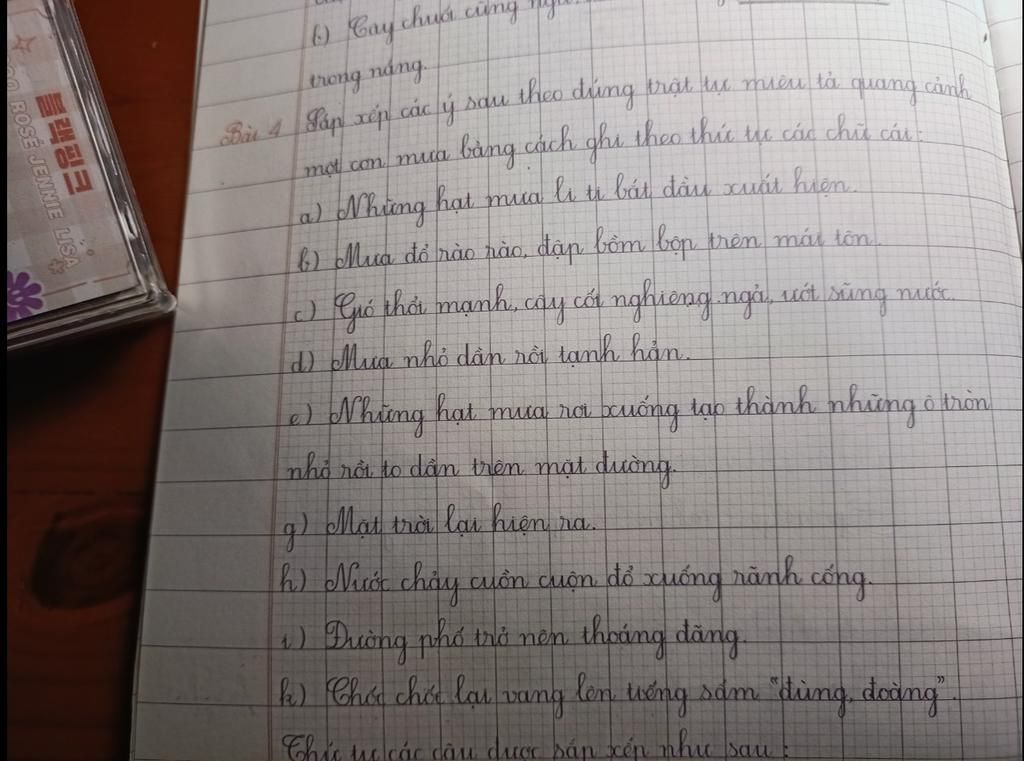 b) Cây chuối cũng ngủ
trong nắng.
Bài 4 Sắp xếp các ý sau theo đúng trật tự miêu tả quang cảnh
một cơn mưa bằng cách ghi theo thức tự các chữ cái:
a) Những hạt mưa li ti bắt đầu xuất hiện.
b) Mưa đổ rào rào, đập bồm bộp trên mái tôn.
c) Gió thổi mạnh, cây cối nghiêng ngả, ướt sũng nước.
d) Mưa nhỏ dần rồi tạnh hẳn.
e) Những hạt mưa rơi xuống tạo thành những ô tròn
nhỏ rồi to dần trên mặt đường.
g) Mặt trời lại hiện ra.
h) Nước chảy cuồn cuộn đổ xuống rãnh cống.
i) Đường phố trở nên thoáng đãng.
k) Chốc chốc lại vang lên tiếng sấm "đùng, đoàng".
Thức tự các câu được sắp xếp như sau:
블랙핑크
ROSÉ JENNIE LISA